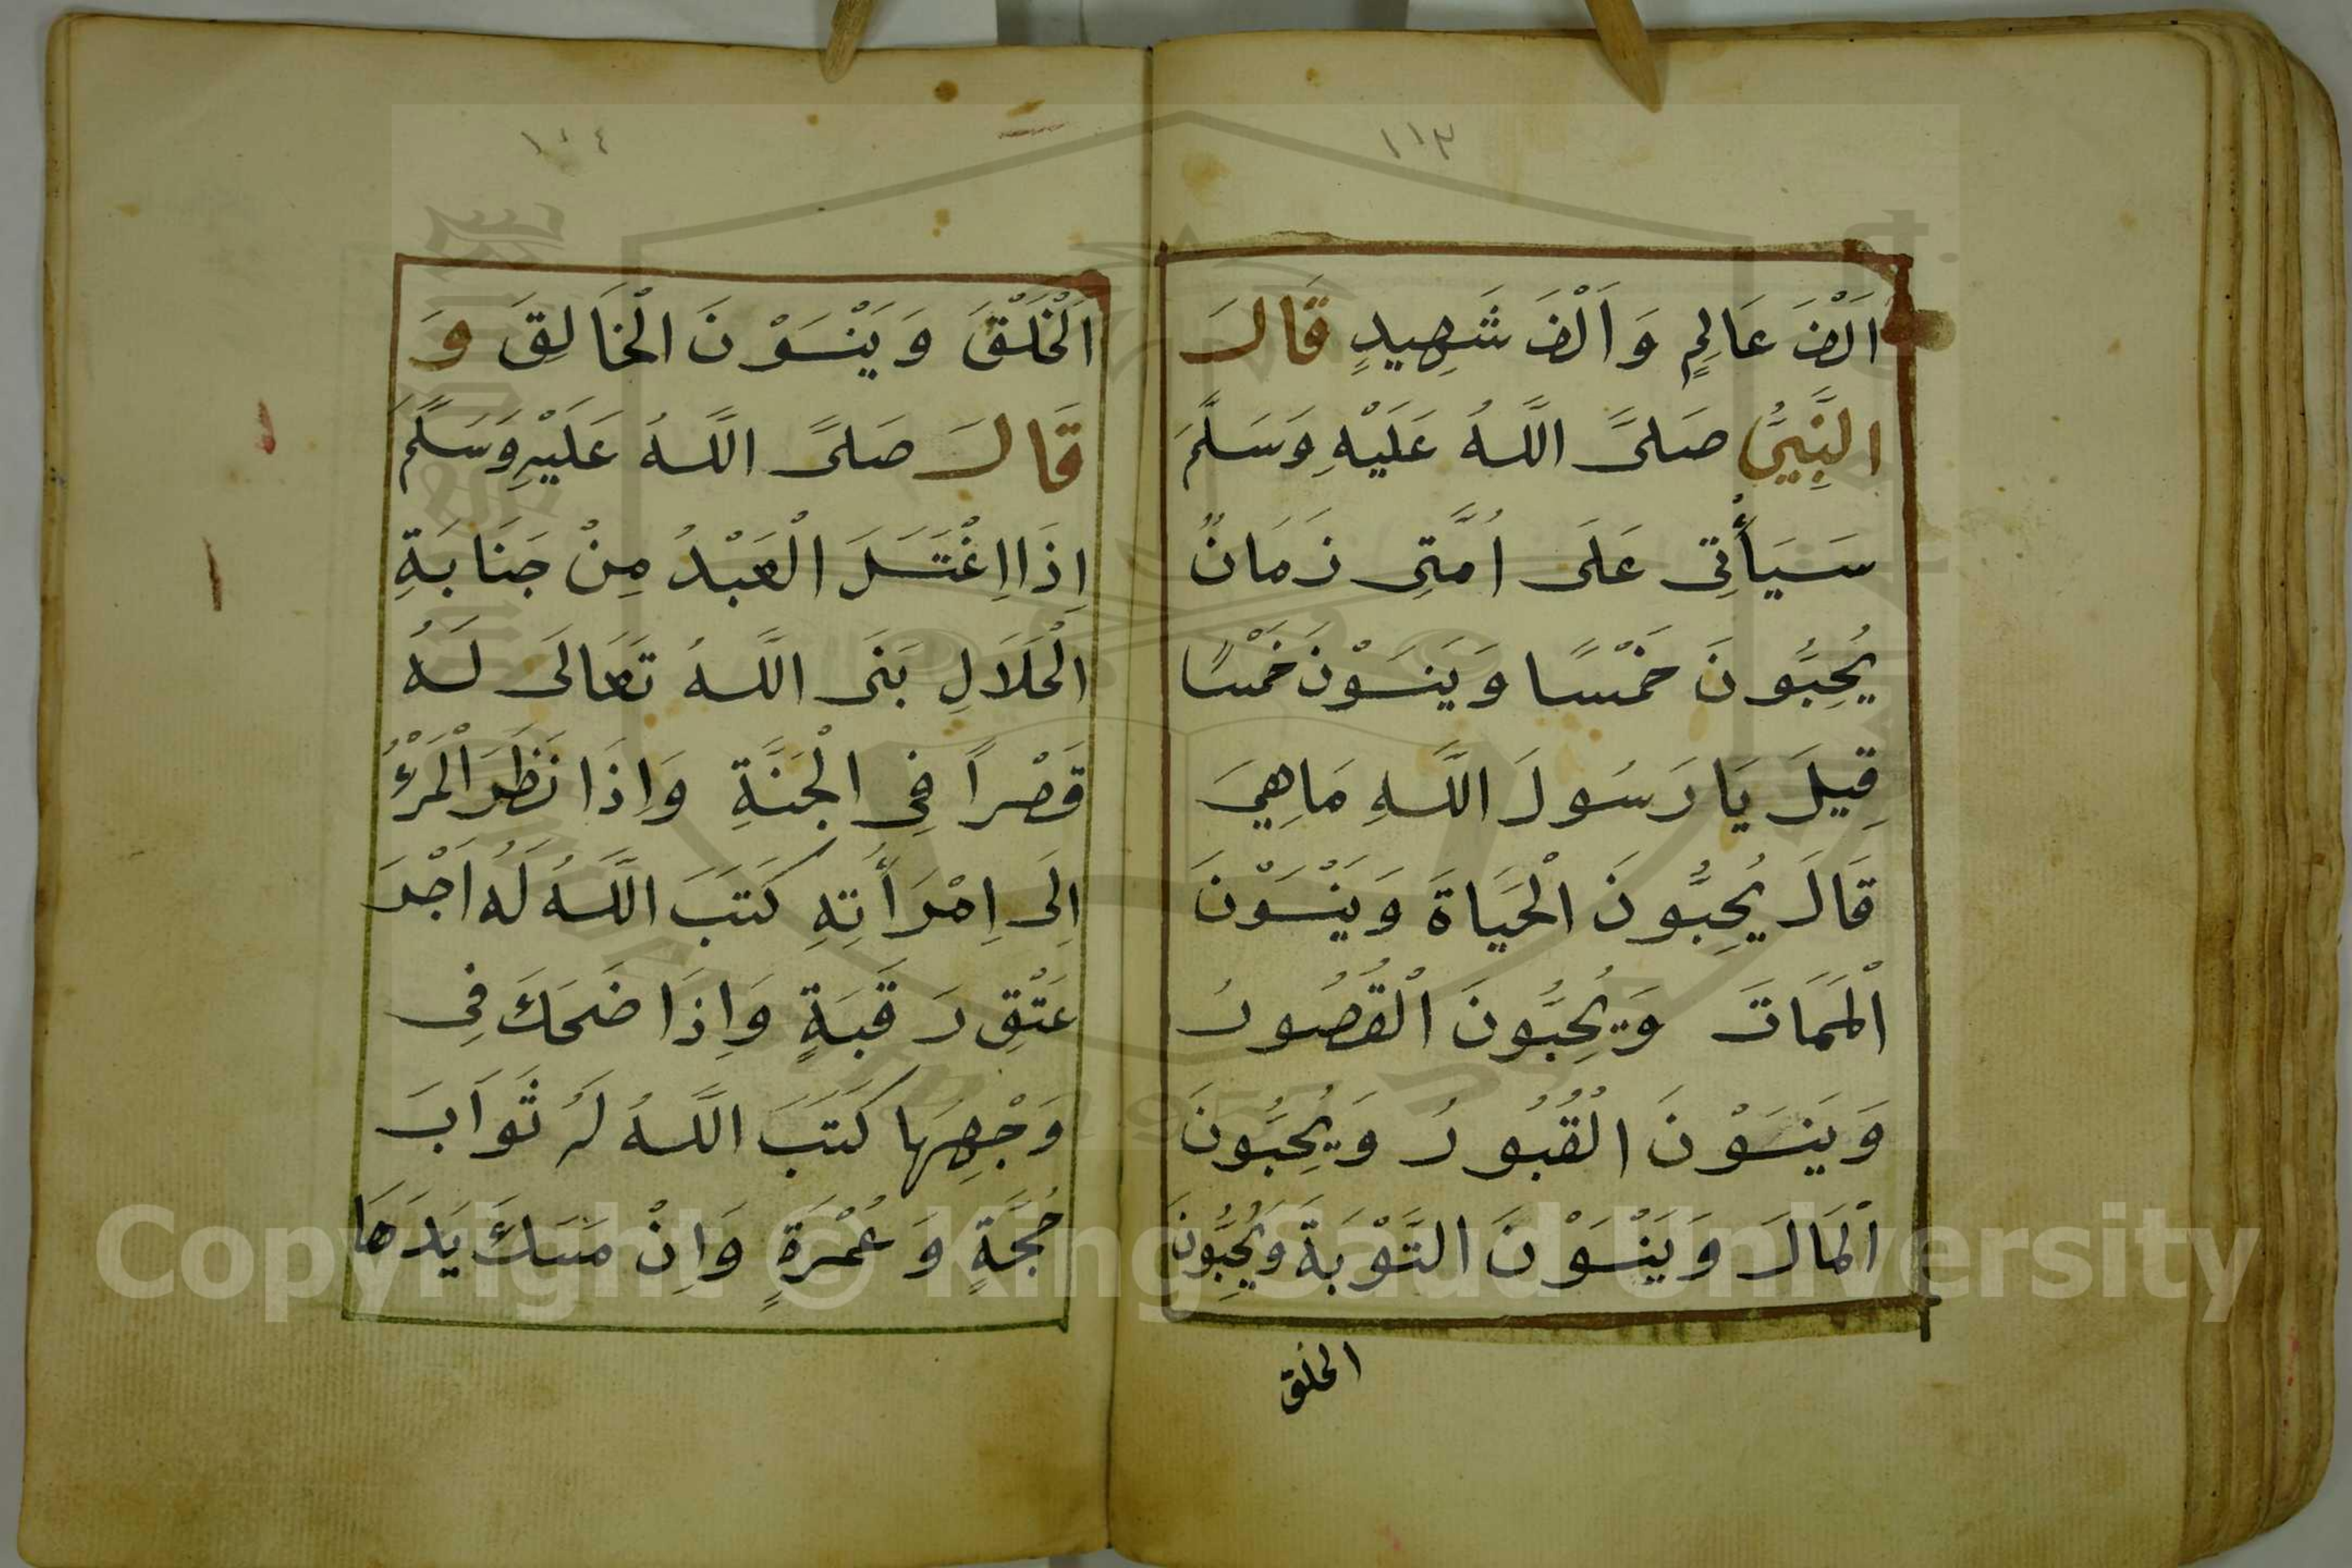 ١١٣
اَلْفَ عَالِمٍ وَاَلْفَ شَهِيدٍ قَالَ
النَّبِيُّ صَلَّى اللَّهُ عَلَيْهِ وَسَلَّمَ
سَيَأْتِى عَلَى اُمَّتِى زَمَانٌ
يُحِبُّونَ خَمْسًا وَيَنسَوْنَ خَمْسًا
قِيلَ يَا رَسُولَ اللَّهِ مَاهِيَ
قَالَ يُحِبُّونَ الْحَيَاةَ وَيَنْسَوْنَ
الْمَمَاتَ وَيُحِبُّونَ الْقُصُورُ
وَيَنسَوْنَ الْقُبُورُ وَيُحِبُّونَ
الْمَالَ وَيَنْسَوْنَ التَّوْبَةَ وَيُحِبُّونَ
الخلق
١١٤
اَلْخَلْقَ وَيَنْسَوْنَ الْخَالِقَ وَ
قَالَ صَلَّى اللَّهُ عَلَيْهِ وَسَلَّمَ
اِذَا اِغْتَسَلَ الْعَبْدُ مِنْ جَنَابَةِ
الْحَلَالِ بَنَى اللَّهُ تَعَالَى لَهُ
قَصْراً فِى الْجَنَّةِ وَاِذَا نَظَرَ الْمَرْءُ
اِلَى اِمْرَأَتِهِ كَتَبَ اللَّهُ لَهُ اَجْرَ
عَتْقِ رَقَبَةٍ وَاِذَا ضَحَكَ فِى
وَجْهِهَا كَتَبَ اللَّهُ لَهُ ثَوَابَ
حُجَّةٍ وَعُمْرَةٍ وَاِنْ مَسَكَ يَدَهَا
Copyright © King Saud University